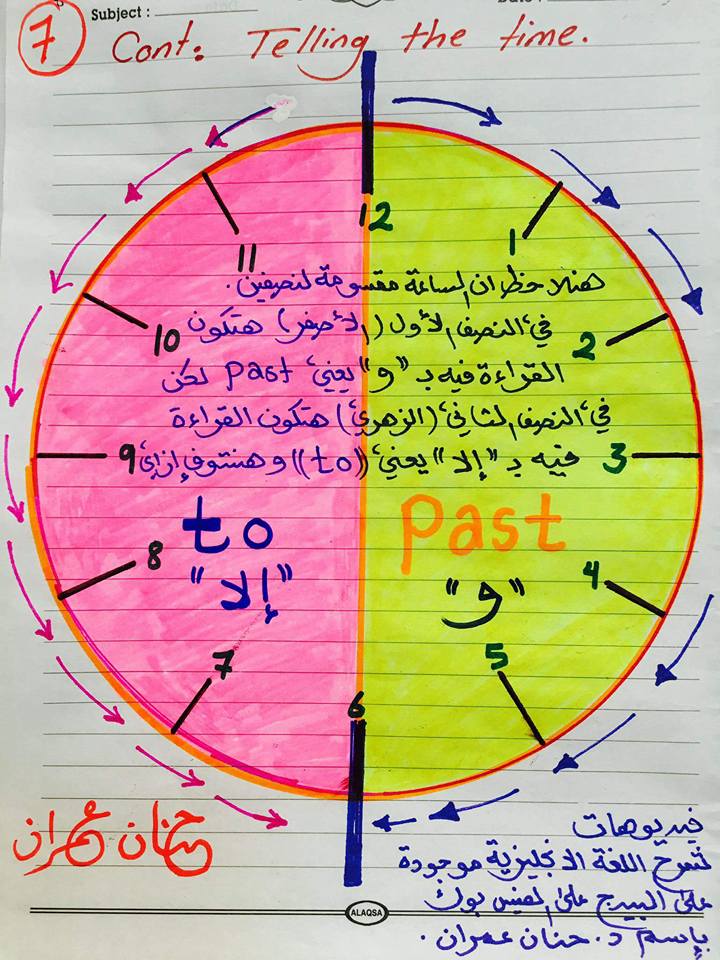 Subject :
7
Cont: Telling the time.
12
11
1
هنلاحظ ان الساعة مقسومة لنصفين.
في النصف الأول (الأصفر) هتكون
10
2
القراءة فيه بـ "و" يعني past لكن
في النصف الثاني (الزهري) هتكون القراءة
9
فيه بـ "إلا" يعني ((to)) وهنشوف إزاي
3
to
past
"إلا"
"و"
8
4
7
5
6
حنان عمران
فيديوهات
لشرح اللغة الانجليزية موجودة
على البيدج على الفيس بوك
بإسم د. حنان عمران.
ALAQSA